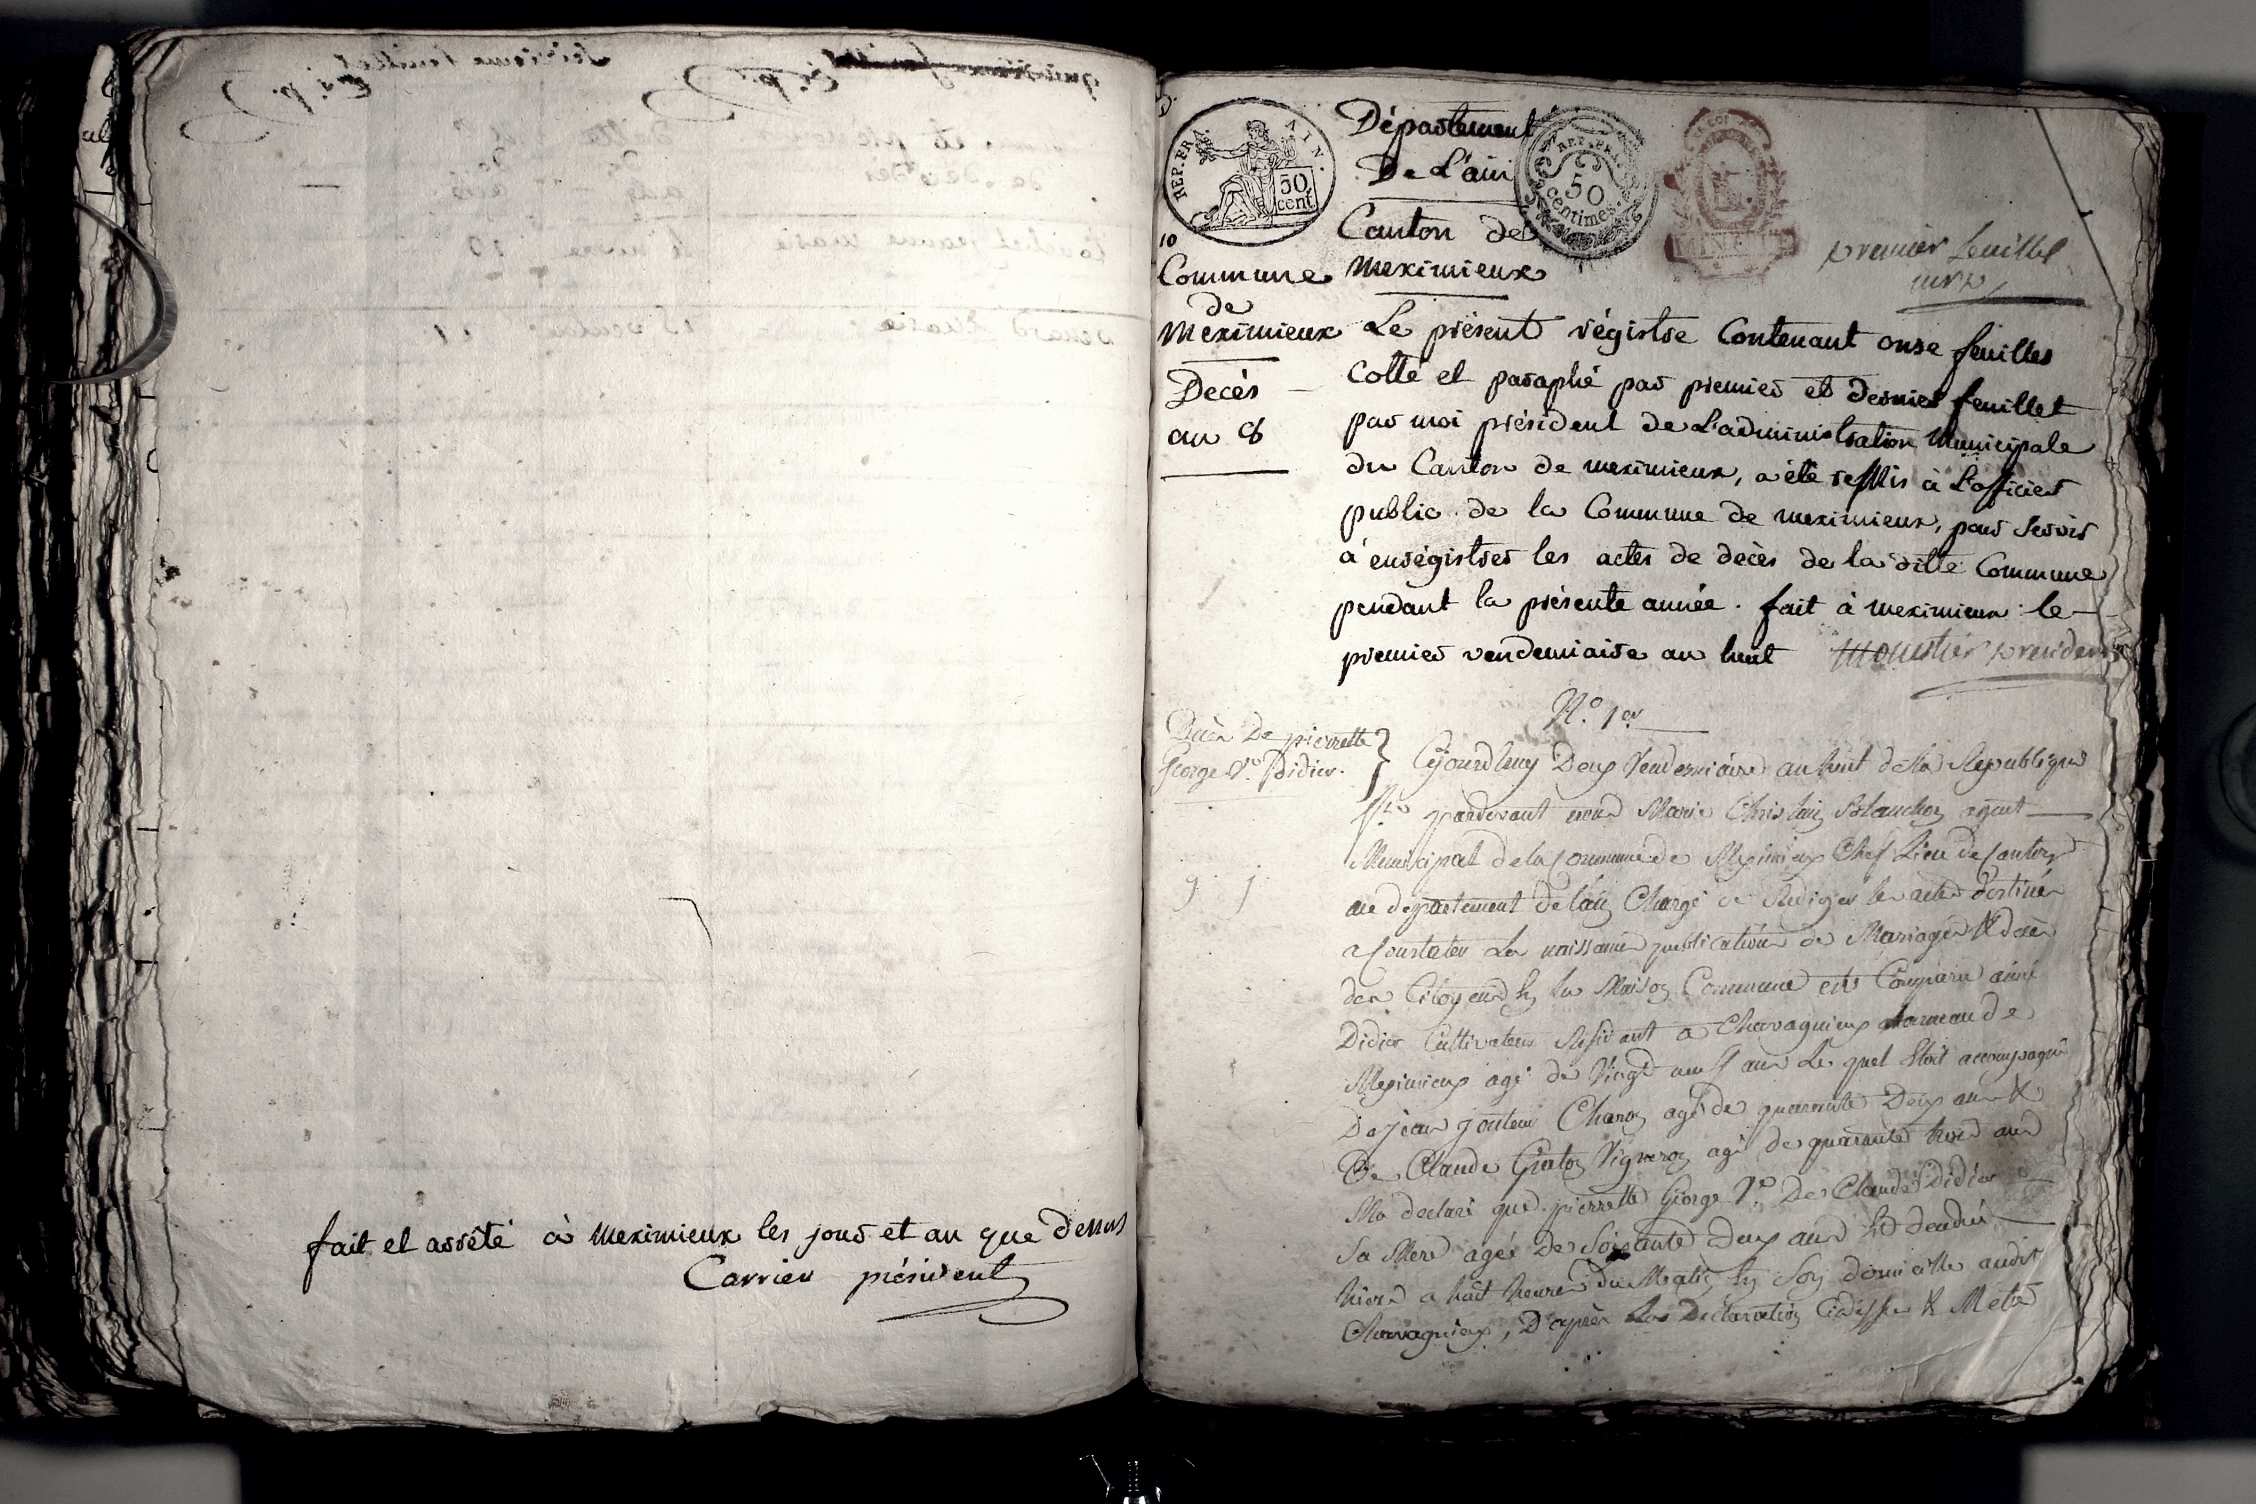 fait et arrêté à meximieux les jour et an que dessus
Carrier président
REP. FRA. AIN.
50
cent
Département
De L'ain
REP. FRA.
50
centimes.
Canton de
meximieux
premier feuillet
10
Commune
de
meximieux
Décès
an 8
Le présent régistre Contenant onze feuilles
Cotté et paraphé par premier et dernier feuillet
par moi président de L'administration municipale
du Canton de meximieux, a été remis à L'officier
public de la Commune de meximieux, pour servir
à enrégistrer les actes de décès de la ditte Commune
pendant la présente année. fait à meximieux le
premier vendemiaire an huit moustier president
N.o 1er
Décès De pierrette
George Ve. Didier.
Cejourdhuy Deux Vendemiaire an huit de la Republique
pardevant nous Marie Christin Blanchon agent
Municipal de la Commune de Meximieux Chef Lieu de Canton
au departement de lain Chargé de Rediger les actes destinés
a Constater La naissances publications de Mariages & décès
des Citoyens En la Maison Commune est Comparu aimé
Didier Cultivateur Residant a Chavagnieux hameau de
Meximieux agé de Vingt neuf ans Le quel Etoit accompagné
De jean agé de quarante Deux ans &
De Claude Vigneron agé de quarante trois ans
Ma declaré que pierrette George Ve. De Claude Didier
Sa Mere agée De Soixante Deux ans Est decedée
hiers a huit heures du Matin En Son domicille audit
Chavagnieux, D'après La Declaration Cidessus &